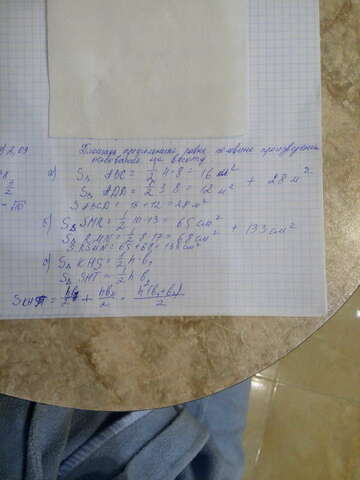 Площадь треугольника равна половине произведения
основания на высоту
а) S△ ABC = 1/2 4·8 = 16 см²
S△ ADD = 1/2 3·8 = 12 м² + 28 м²
S ABCD = 16+12 = 28 м²
б) S△ SMR = 1/2 10·13 = 65 см²
S△ RMN = 1/2 8·17 = 68 см² + 133 см²
= 65+68 = 133 см²
S△ KHS = 1/2 h·b₁
S△ SHT = 1/2 h·b₂
= hb₁/2 + hb₂/2 = h(b₁+b₂)/2